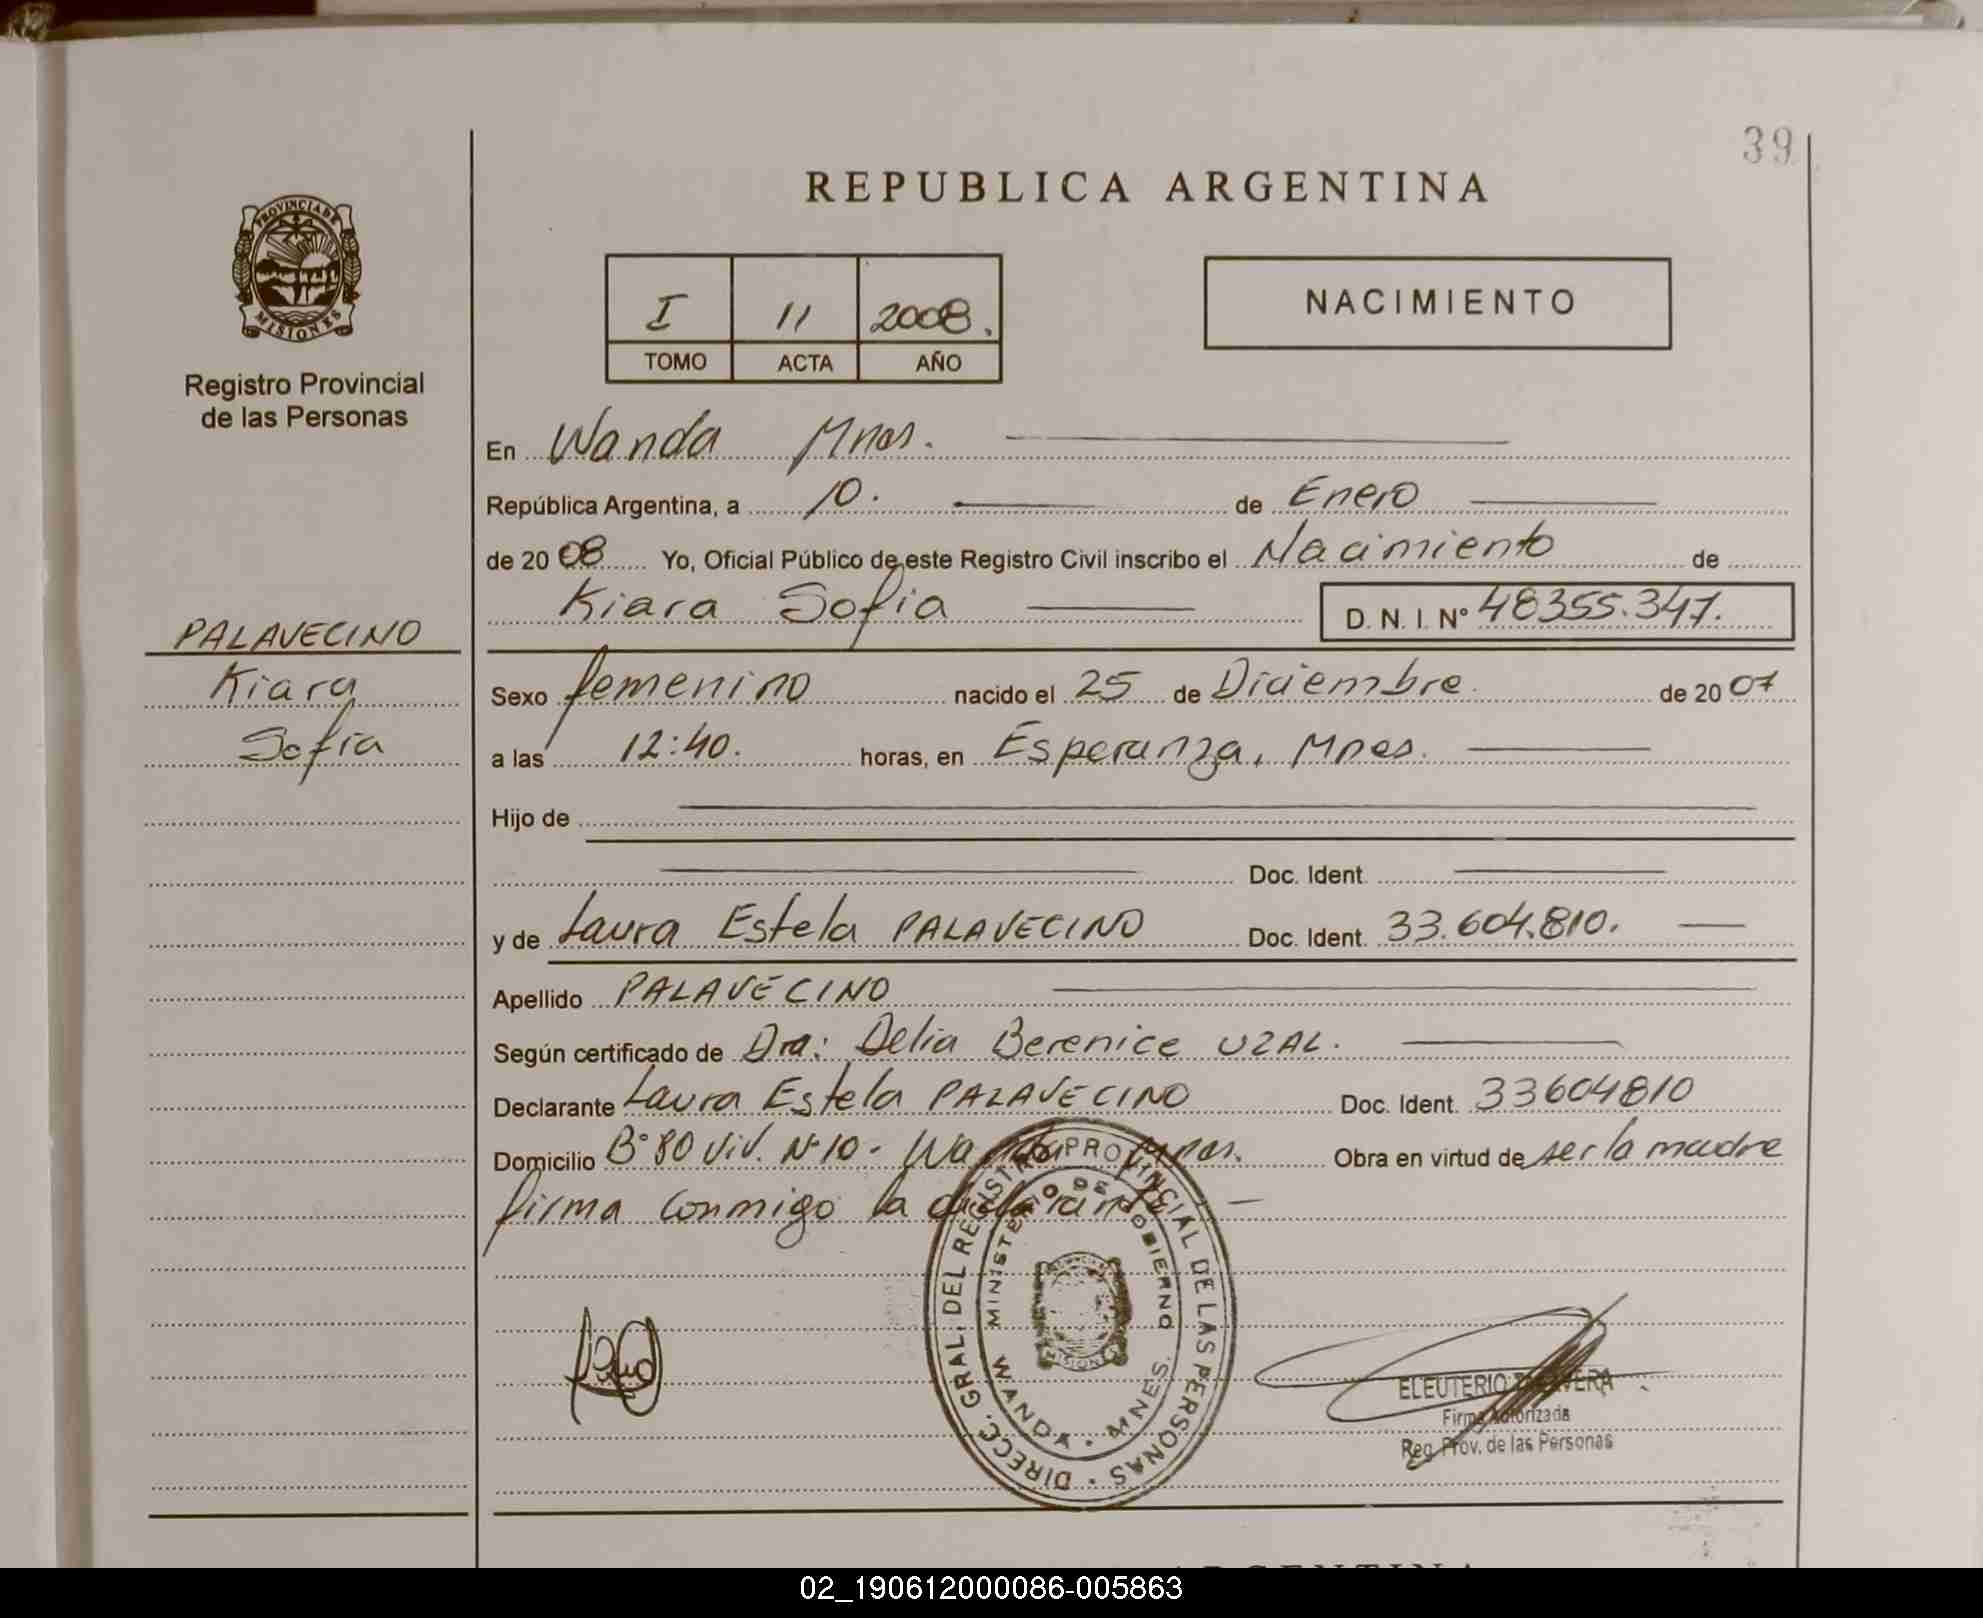 39
REPUBLICA ARGENTINA
PROVINCIA DE
MISIONES
Registro Provincial
de las Personas
I 11 2008.
TOMO ACTA AÑO
NACIMIENTO
En Wanda Mnes.
República Argentina, a 10. de Enero
de 2008 Yo, Oficial Público de este Registro Civil inscribo el Nacimiento de
Kiara Sofia D. N. I. N° 48355.347.
PALAVECINO
Kiara
Sofia
Sexo femenino nacido el 25 de Diciembre de 2007
a las 12:40. horas, en Esperanza, Mnes.
Hijo de
Doc. Ident.
y de Laura Estela PALAVECINO Doc. Ident. 33.604.810.
Apellido PALAVECINO
Según certificado de Dra: Delia Berenice UZAL.
Declarante Laura Estela PALAVECINO Doc. Ident. 33604810
Domicilio B° 80 Viv. N°10. Wanda Mnes. Obra en virtud de ser la madre
firma conmigo la declarante
DIRECC. GRAL. DEL REGISTRO PROVINCIAL DE LAS PERSONAS
MINISTERIO DE GOBIERNO
WANDA - MNES.
MISIONES
ELEUTERIO
Firma Autorizada
Reg. Prov. de las Personas
ARGENTINA
02_190612000086-005863